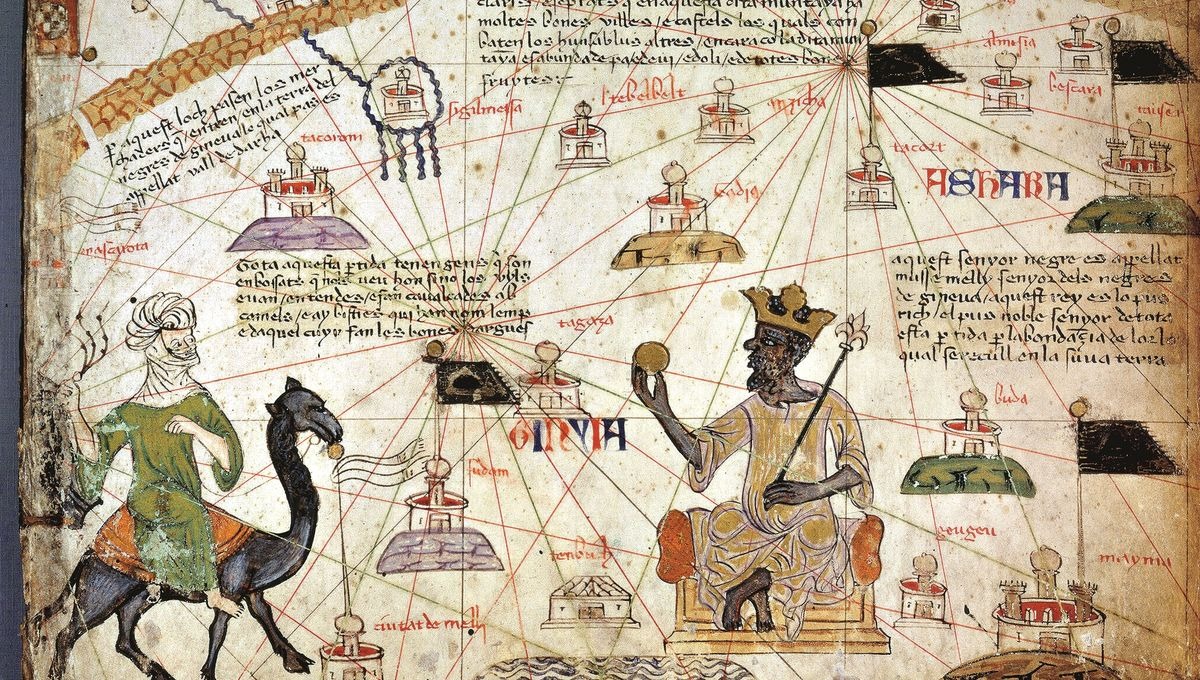 moltes bones villes / e castels los quals con
baten los huns ab lus altres / encara co la dita mun
taya es abunda de pa e de vi / e doli / e de totes bones
fruytes :-
p aquest loch pasen los mer
chaders q entren en la terra del
negres de gineva lo qual pas es
appellat vall de darha
tacorom
sigilmessa
tebelbelt
anzicha
bescara
tacort
ASHARA
Tota aquesta ptida tenen gens q son
enbossats q nols veu hom sino los uyls
e van en tendes / e fan cavalcades ab
camels / e ay bisties qui han nom lemp
e daquel cuyr fan les bones dargues
tagaza
aquest senyor negre es appellat
musse melly senyor dels negres
de gineva / aquest rey es lo pus
rich / el pus noble senyor de tota
esta ptida p labondançia de lor lo
qual se recull en la suua terra
GINVIA
buda
sudam
tenbuch
geugeu
mayma
ciutat de melly